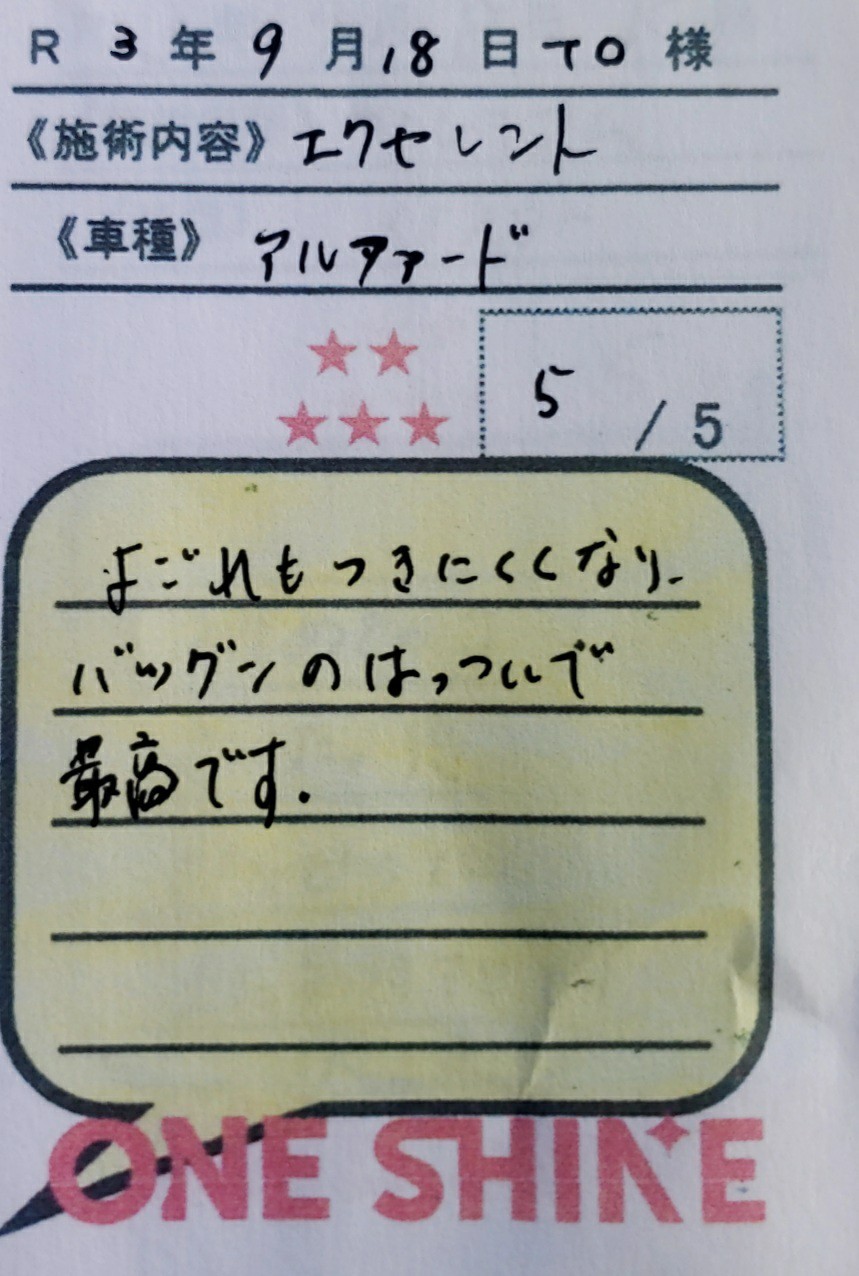 R 3年9月18日 TO 様
《施術内容》エクセレント
《車種》アルファード
5 / 5
よごれもつきにくくなり、
バツグンのはっついで
最高です.
ONE SHINE